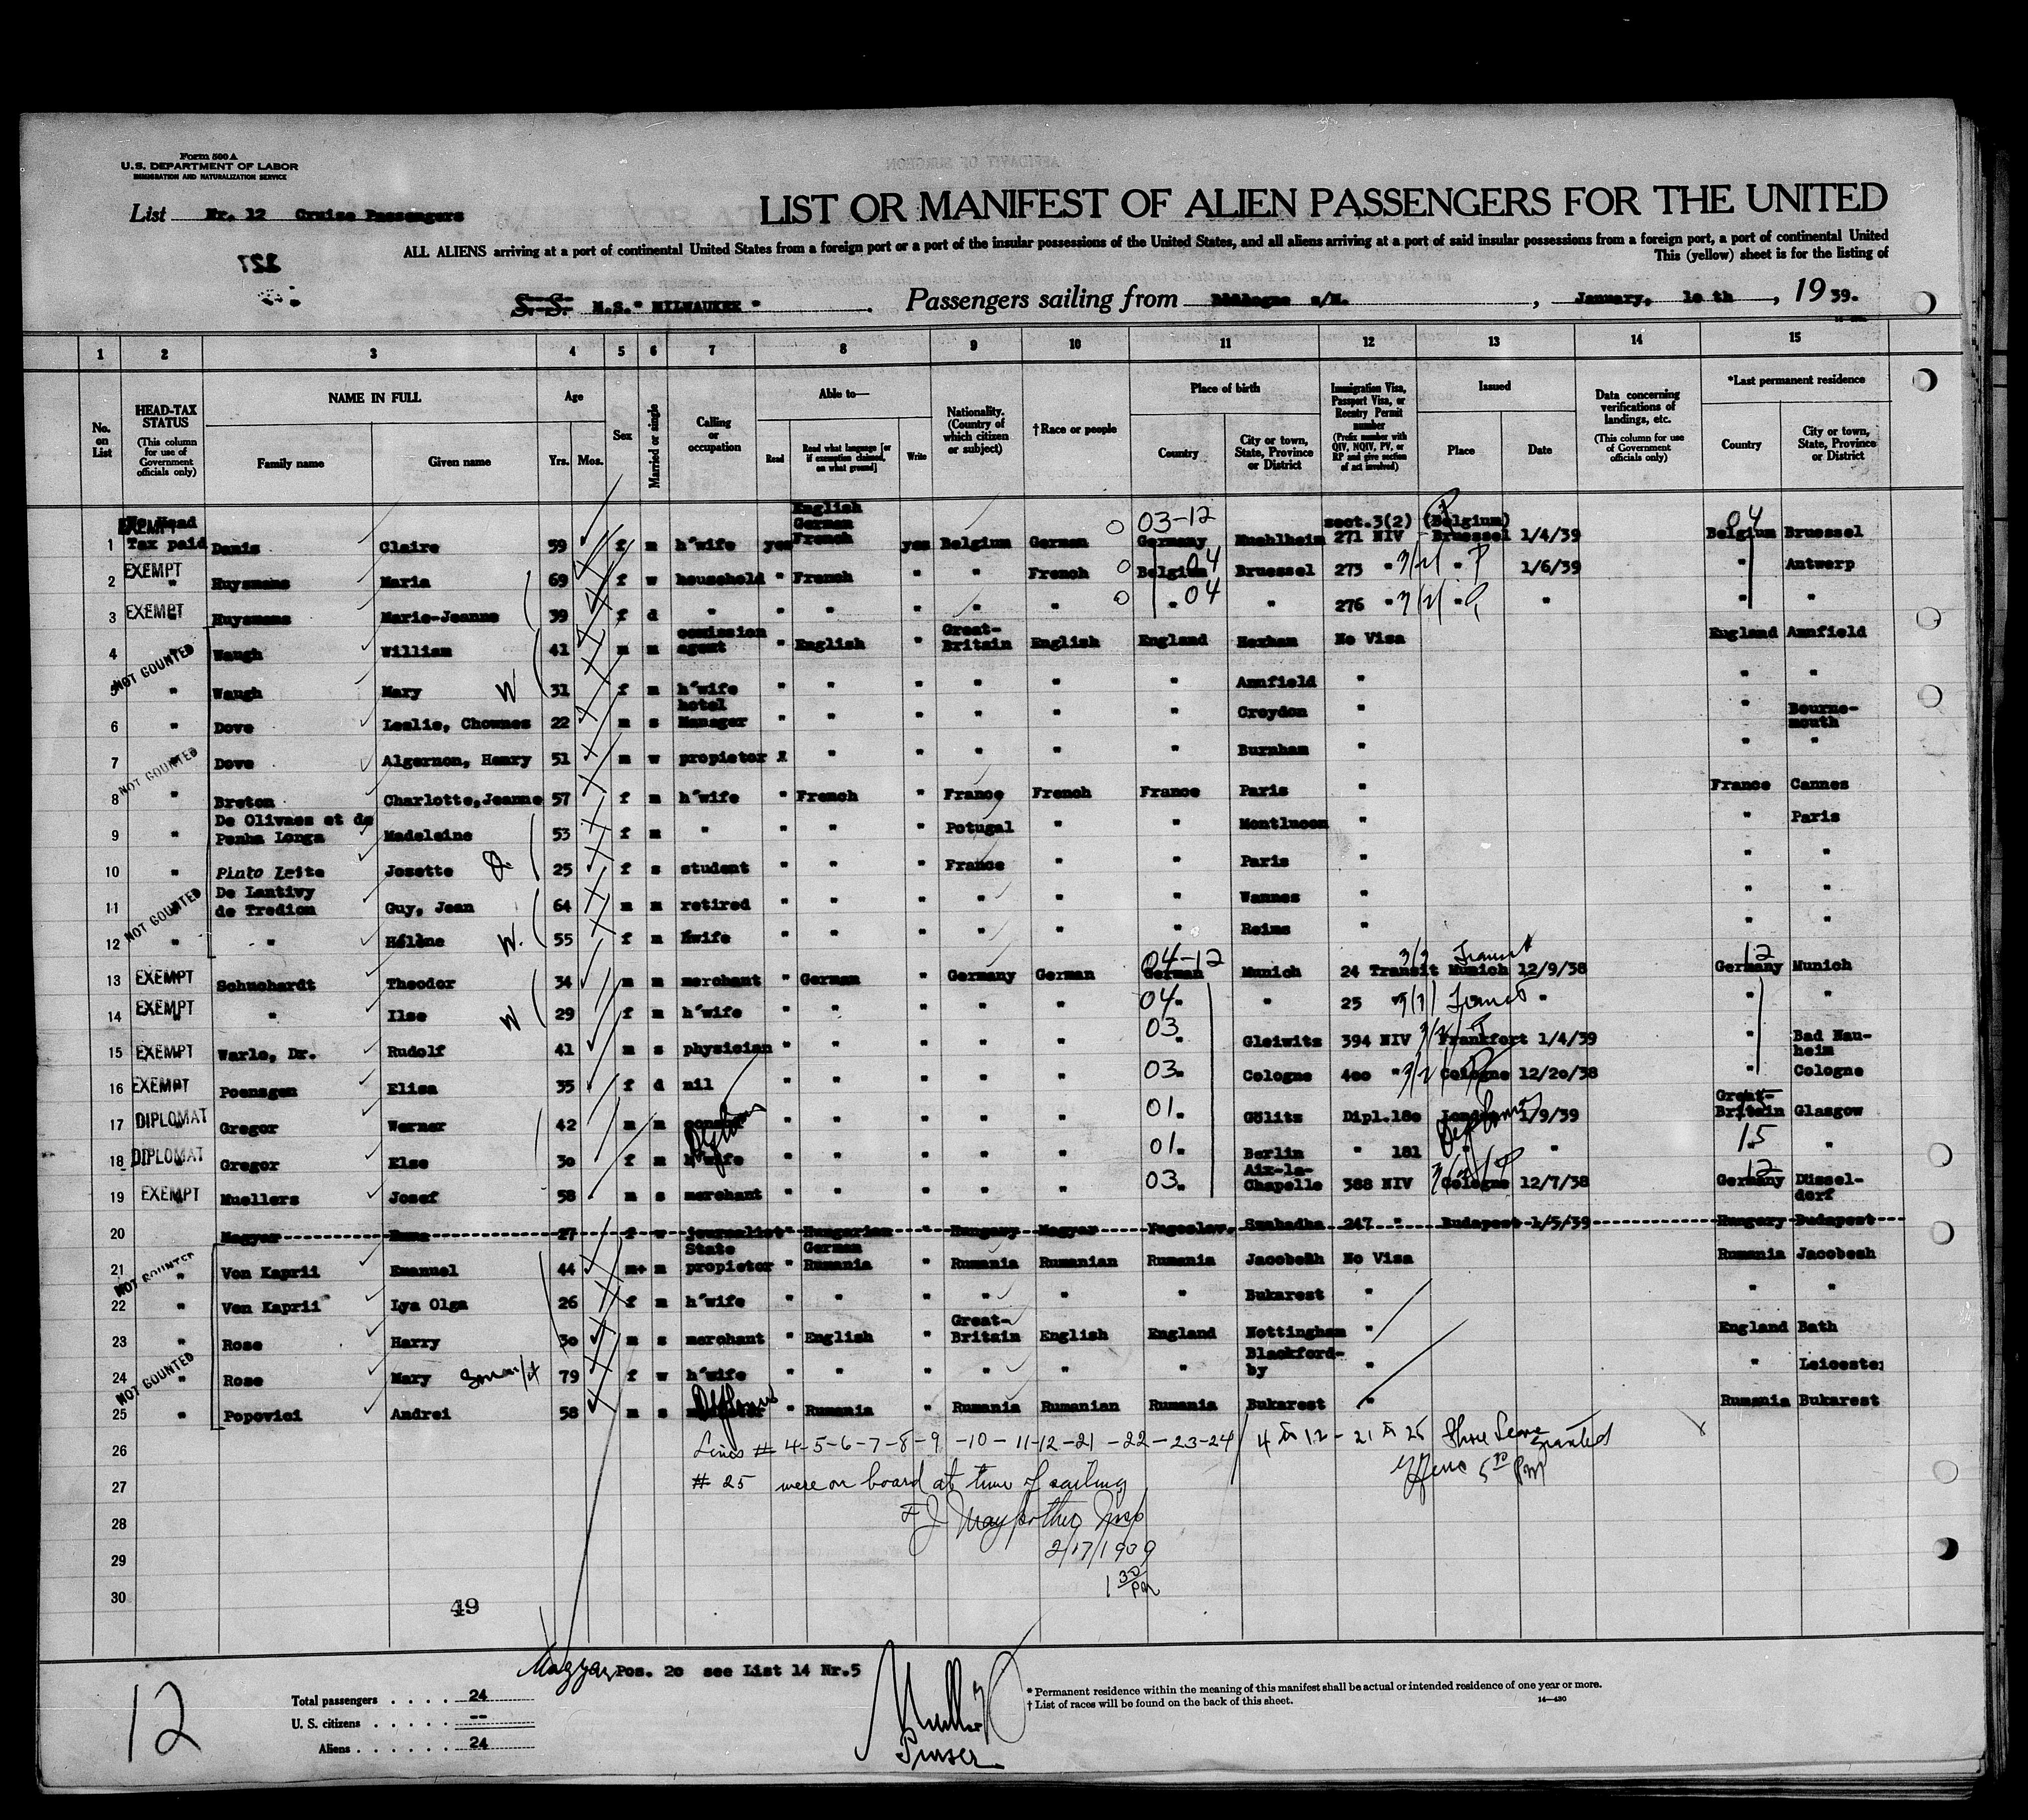 Form 500 A
U.S. DEPARTMENT OF LABOR
IMMIGRATION AND NATURALIZATION SERVICE
List Nr. 12 Cruise Passengers
LIST OR MANIFEST OF ALIEN PASSENGERS FOR THE UNITED
ALL ALIENS arriving at a port of continental United States from a foreign port or a port of the insular possessions of the United States, and all aliens arriving at a port of said insular possessions from a foreign port, a port of continental United
This (yellow) sheet is for the listing of
S.S. M.S." MILWAUKEE " Passengers sailing from s/M. , January, 10 th , 19 39.
1 2 3 4 5 6 7 8 9 10 11 12 13 14 15
No. on List
HEAD-TAX STATUS (This column for use of Government officials only)
NAME IN FULL Family name Given name
Age Yrs. Mos.
Sex
Married or single
Calling or occupation
Able to— Read Read what language [or if exemption claimed, on what ground] Write
Nationality. (Country of which citizen or subject)
†Race or people
Place of birth Country City or town, State, Province or District
Immigration Visa, Passport Visa, or Reentry Permit number (Prefix number with QIV, NQIV, PV, or RP and give section of act involved)
Issued Place Date
Data concerning verifications of landings, etc. (This column for use of Government officials only)
*Last permanent residence Country City or town, State, Province or District
1 EXEMPT No Head Tax paid Danis Claire 59 f m h'wife yes English German French yes Belgium German 03-12 Germany Muehlheim sect.3(2) 271 NIV (Belgium) Bruessel 1/4/39 04 Belgium Bruessel
2 EXEMPT " Huysmans Maria 69 f w household " French " " French Belgium 04 Bruessel 273 " 3/2/ " P 1/6/39 " Antwerp
3 EXEMPT " Huysmans Marie-Jeanne 39 f d " " " " " " " 04 " 276 " 3/2/ " P " " "
4 NOT COUNTED " Waugh William 41 m m comission agent " English " Great-Britain English England Hexham No Visa England Annfield
5 " Waugh Mary W 31 f m h'wife " " " " " " Annfield " " "
6 " Dove Leslie, Chownes 22 m s hotel Manager " " " " " " Croydon " " Bourne-mouth
7 NOT COUNTED " Dove Algernon, Henry 51 m w propietor X " " " " " Burnham " " "
8 " Breton Charlotte,Jeanne 57 f m h'wife " French " France French France Paris " France Cannes
9 " De Olivaes et de Penha Longa Madeleine 53 f m " " " " Potugal " " Montlucon " " Paris
10 " Pinto Leite Josette D. 25 f s student " " " France " " Paris " " "
11 NOT COUNTED " De Lantivy de Tredion Guy, Jean 64 m m retired " " " " " " Vannes " " "
12 " " Hélène W. 55 f m h'wife " " " " " " Reims " " "
13 EXEMPT Schuchardt Theodor 34 m m merchant " German " Germany German 04-12 German Munich 24 Transit 3/3 Transit Munich 12/9/38 12 Germany Munich
14 EXEMPT " " Ilse W 29 f m h'wife " " " " " 04 " " 25 " " " "
15 EXEMPT Warlo, Dr. Rudolf 41 m s physician " " " " " 03 " Gleiwitz 394 NIV Frankfort 1/4/39 " Bad Nau-heim
16 EXEMPT Poensgen Elisa 35 f d nil " " " " " 03 " Cologne 400 " 3/2 Cologne 12/20/38 " Cologne
17 DIPLOMAT Gregor Werner 42 m m consul Diplomat " " " " " 01 " Gölitz Dipl.180 London 1/9/39 Great-Britain Glasgow
18 DIPLOMAT Gregor Else 30 f m h'wife " " " " " 01 " Berlin " 181 " " 15 " "
19 EXEMPT Muellers Josef 58 m s merchant " " " " " 03 " Aix-la-Chapelle 388 NIV Cologne 12/7/38 12 Germany Düssel-dorf
20 Magyar 27 f w journalist " Hungarian " Hungary Magyar Yugoslav. 247 " Budapest 1/5/39 Hungary Budapest
21 NOT COUNTED " Von Kaprii Emanuel 44 m m State propietor " German Rumania " Rumania Rumanian Rumania Jacobeah No Visa Rumania Jacobeah
22 " Von Kaprii Lya Olga 26 f m h'wife " " " " " " Bukarest " " "
23 " Rose Harry 30 m s merchant " English " Great-Britain English England Nottingham " England Bath
24 NOT COUNTED " Rose Mary 79 f w h'wife " " " " " " Blackford-by " " Leicester
25 " Popovici Andrei 58 m s " Rumania " Rumania Rumanian Rumania Bukarest " Rumania Bukarest
26 Lines # 4-5-6-7-8-9-10-11-12-21-22-23-24/ 4 to 12 - 21 to 25 Shore Leave granted
27 # 25 were on board at time of sailing 5 PM
28 F J Insp
29 2/17/1939
30 1 30 PM
49
Magyar Pos. 20 see List 14 Nr.5
12
Total passengers . . . . 24
U. S. citizens . . . . . --
Aliens . . . . . . 24
Mueller
Purser
* Permanent residence within the meaning of this manifest shall be actual or intended residence of one year or more.
† List of races will be found on the back of this sheet. 14—430